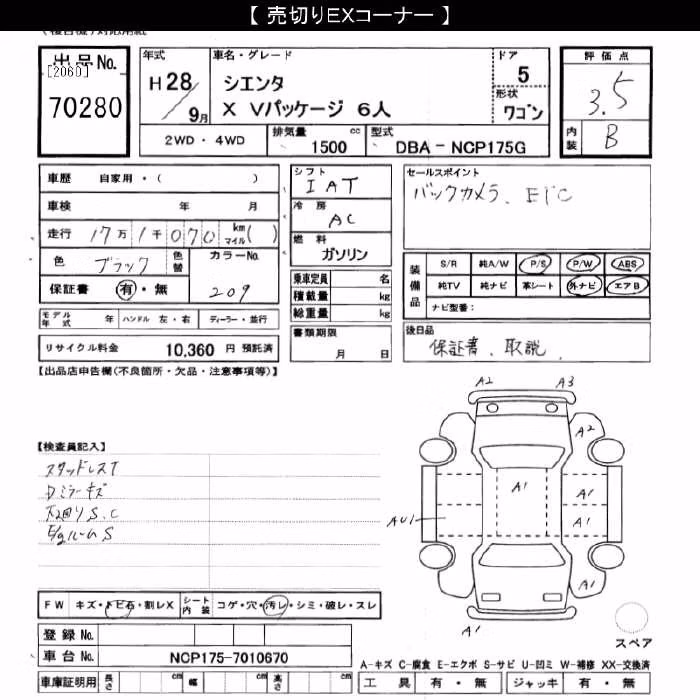 【 売切りEXコーナー 】
出品No.
[2060]
70280
年式
H28/9月
車名・グレード
シエンタ
X Vパッケージ 6人
ドア
5
形状
ワゴン
2WD ・ 4WD
排気量
1500 cc
型式
DBA － NCP175G
評価点
3.5
内装
B
車歴 自家用・( )
車検 年 月
走行 17万1千070 km マイル( )
色 ブラック 色替
カラーNo.
209
保証書 有・無
モデル年式 年 ハンドル 左・右 ディーラー・並行
リサイクル料金 10,360 円 預託済
シフト
IAT
冷房
AC
燃料
ガソリン
乗車定員 名
積載量 kg
総重量 kg
書類期限
月 日
セールスポイント
バックカメラ、ETC
装備品
S/R 純A/W P/S P/W ABS
純TV 純ナビ 革シート 外ナビ エアB
ナビ型番:
後日品
保証書、取説、
【出品店申告欄(不良箇所・欠品・注意事項等)】
【検査員記入】
スタッドレスT
Dミラーキズ
下廻りS.C
E/gルームS
A2 A3
A2
A1
A1
AU1
A1
A1
A1
スペア
FW キズ・トビ石・割レX
シート内装 コゲ・穴・汚レ・シミ・破レ・スレ
登録 No.
車台 No. NCP175-7010670
車庫証明用 長さ cm 幅 cm 高さ cm
A-キズ C-腐食 E-エクボ S-サビ U-凹ミ W-補修 XX-交換済
工具 有・無 ジャッキ 有・無